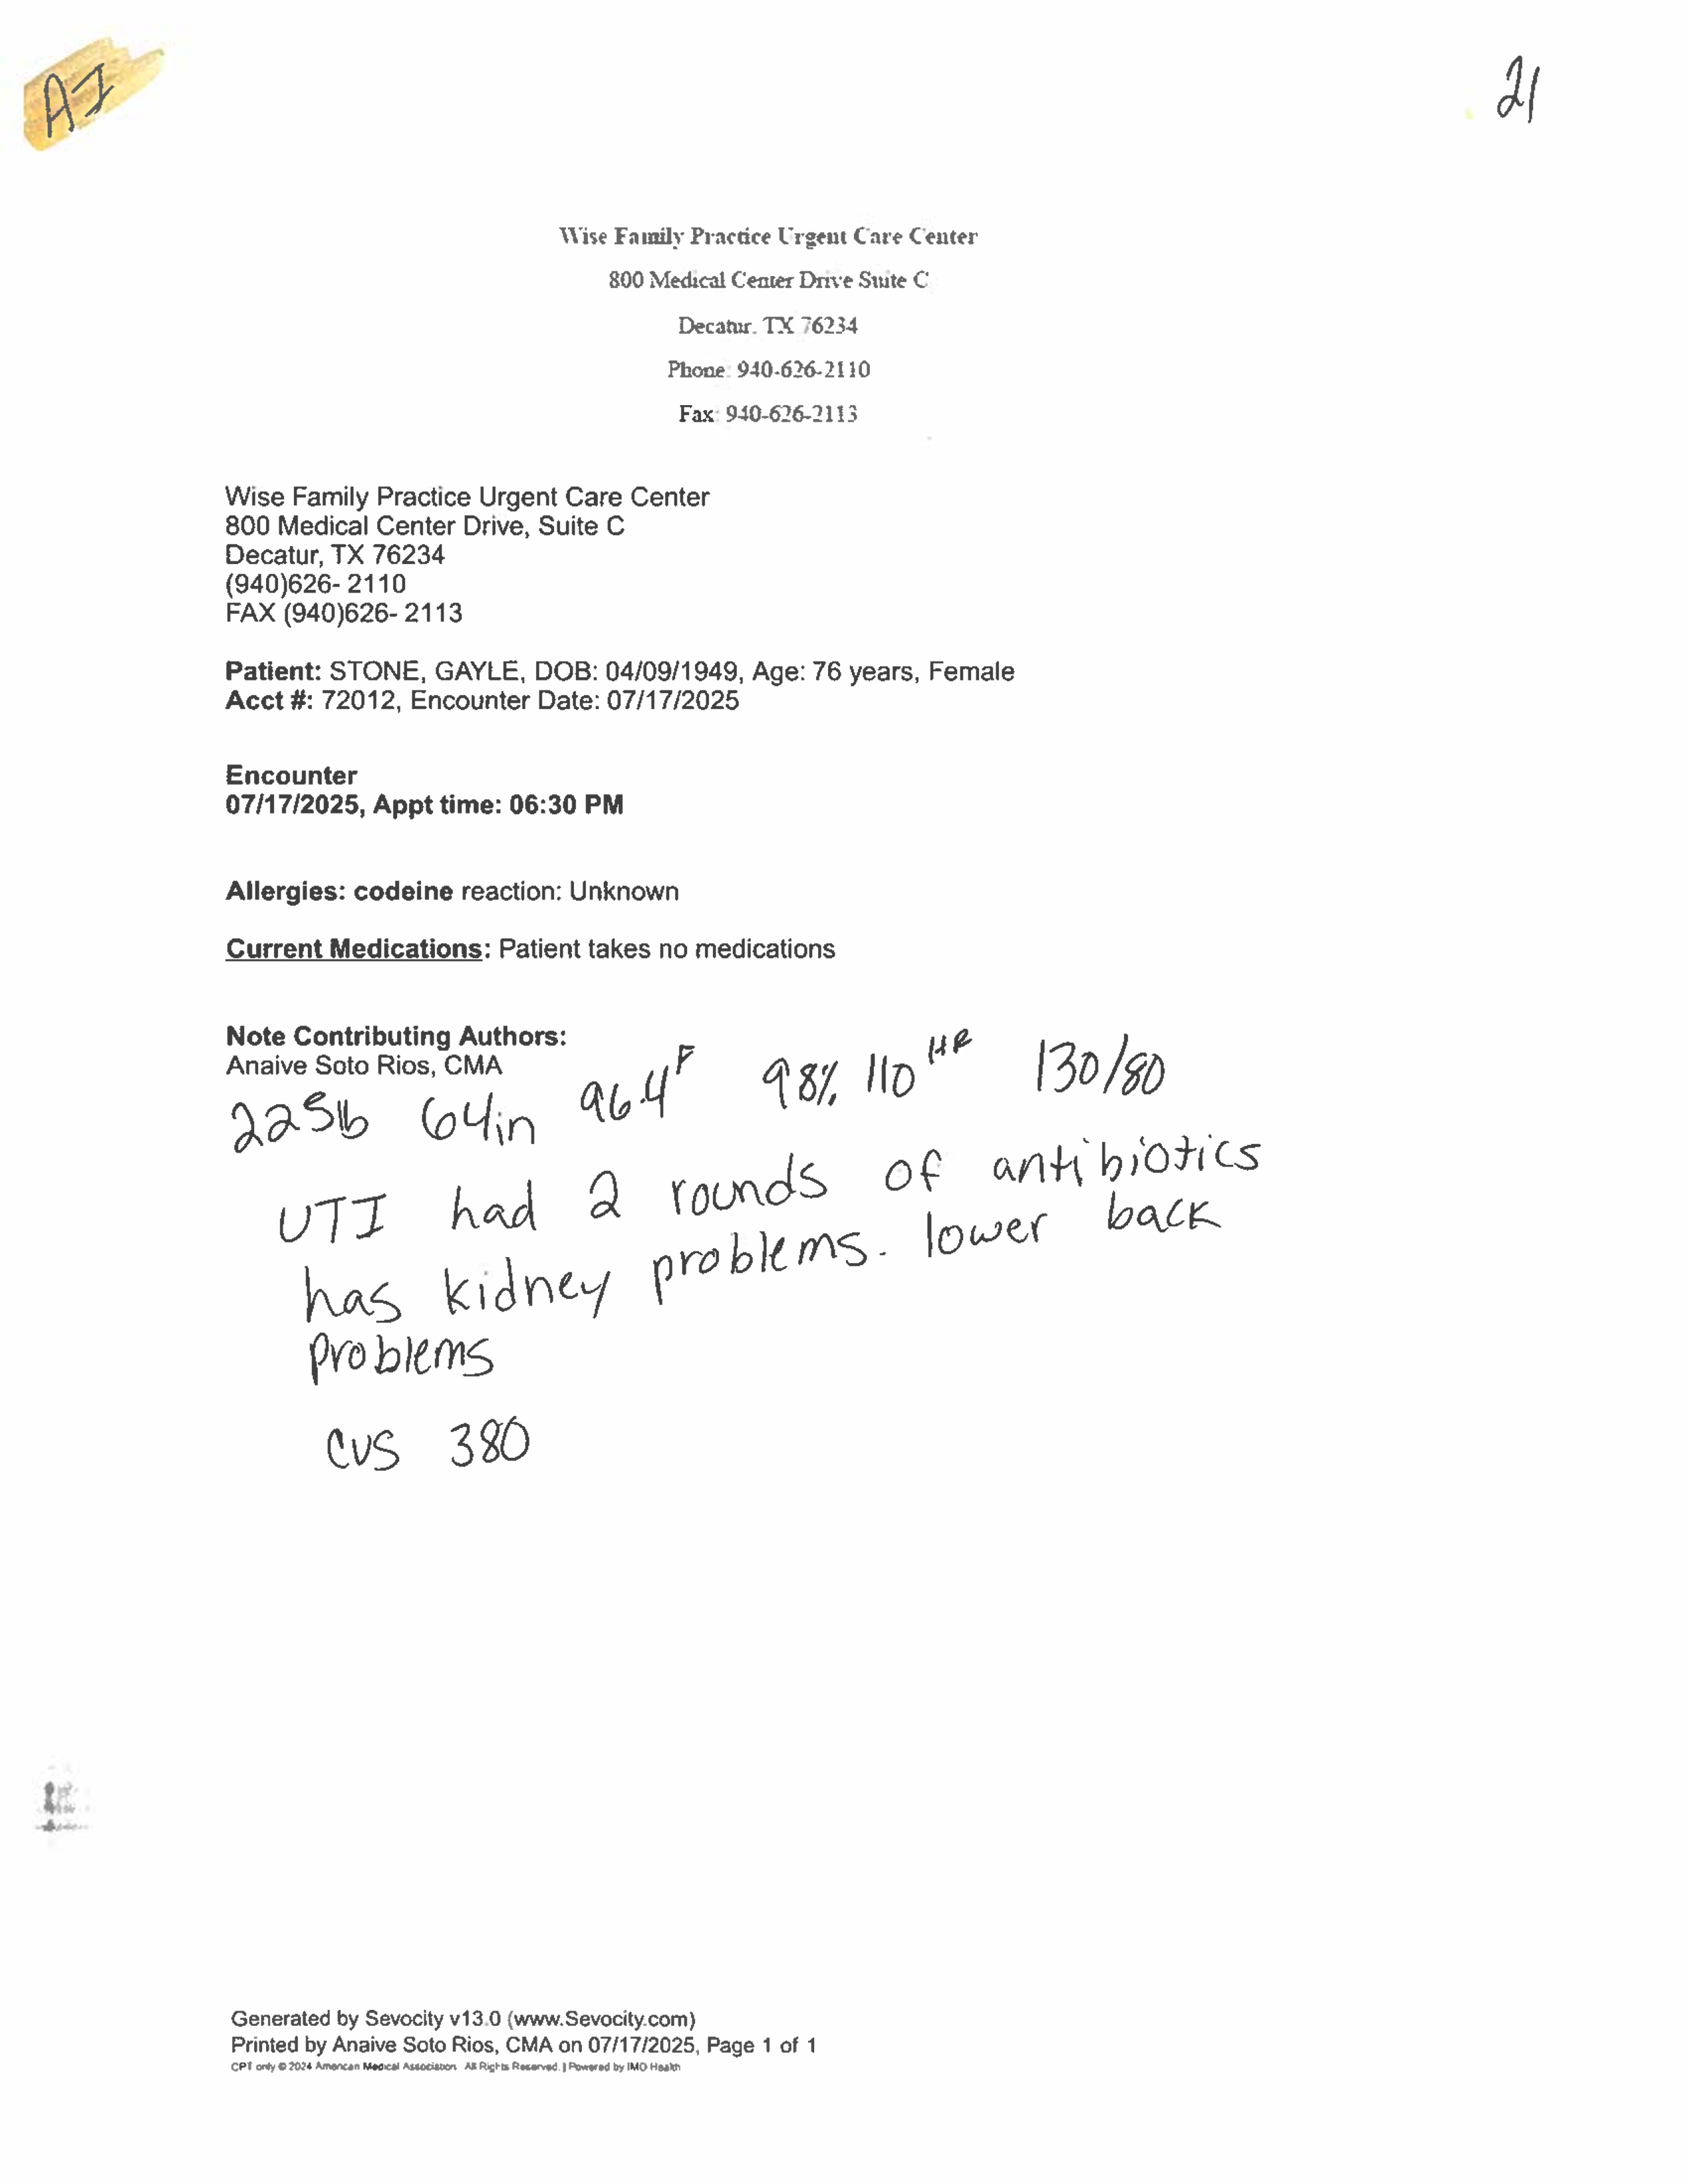 AI
21
Wise Family Practice Urgent Care Center
800 Medical Center Drive Suite C
Decatur, TX 76234
Phone: 940-626-2110
Fax: 940-626-2113
Wise Family Practice Urgent Care Center
800 Medical Center Drive, Suite C
Decatur, TX 76234
(940)626- 2110
FAX (940)626- 2113
Patient: STONE, GAYLE, DOB: 04/09/1949, Age: 76 years, Female
Acct #: 72012, Encounter Date: 07/17/2025
Encounter
07/17/2025, Appt time: 06:30 PM
Allergies: codeine reaction: Unknown
Current Medications: Patient takes no medications
Note Contributing Authors:
Anaive Soto Rios, CMA
225lb 64in 96.4F 98% 110 HR 130/80
UTI had 2 rounds of antibiotics
has kidney problems. lower back
problems
CVS 380
Generated by Sevocity v13.0 (www.Sevocity.com)
Printed by Anaive Soto Rios, CMA on 07/17/2025, Page 1 of 1
CPT only © 2024 American Medical Association. All Rights Reserved. | Powered by IMO Health